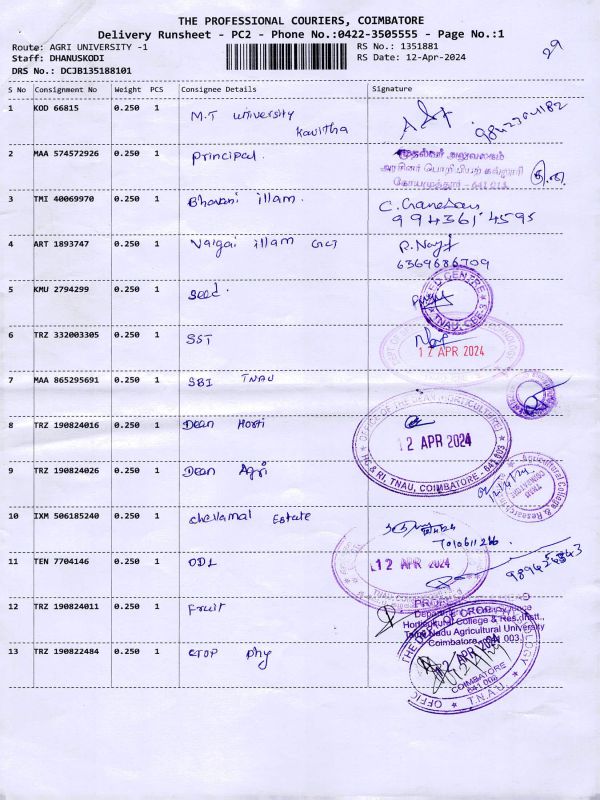 THE PROFESSIONAL COURIERS, COIMBATORE
Delivery Runsheet - PC2 - Phone No.:0422-3505555 - Page No.:1
Route: AGRI UNIVERSITY -1
RS No.: 1351881
Staff: DHANUSKODI
RS Date: 12-Apr-2024
29
DRS No.: DCJB135188101
S No Consignment No Weight PCS Consignee Details Signature
1 KOD 66815 0.250 1 M.T University
Kavitha
2 MAA 574572926 0.250 1 Principal.
முதல்வர் அலுவலகம்
அரசினர் பொறியியற் கல்லூரி
கோயமுத்தூர் - 641 013
3 TMI 40069970 0.250 1 Bhavani illam. C. Ganesan
9943614595
4 ART 1893747 0.250 1 Vaigai illam
6369686709
5 KMU 2794299 0.250 1 Seed.
SEED CENTRE
TNAU, CBE-3
6 TRZ 332003305 0.250 1 SST
12 APR 2024
7 MAA 865295691 0.250 1 SBI TNAU
8 TRZ 190824016 0.250 1 Dean Horti
OFFICE OF THE DEAN (HORTICULTURE)
12 APR 2024
HC & RI, TNAU, COIMBATORE - 641 003
9 TRZ 190824026 0.250 1 Dean Agri
12/4/24
Agricultural College & Research
TNAU
COIMBATORE
10 IXM 506185240 0.250 1 chellamal Estate
11 TEN 7704146 0.250 1 ODL
12 APR 2024
12 TRZ 190824011 0.250 1 Fruit
Horticultural College & Res. Instt.,
Tamil Nadu Agricultural University
Coimbatore - 641 003
13 TRZ 190822484 0.250 1 crop phy
12 APR 2024
COIMBATORE
641 003
T.N.A.U.